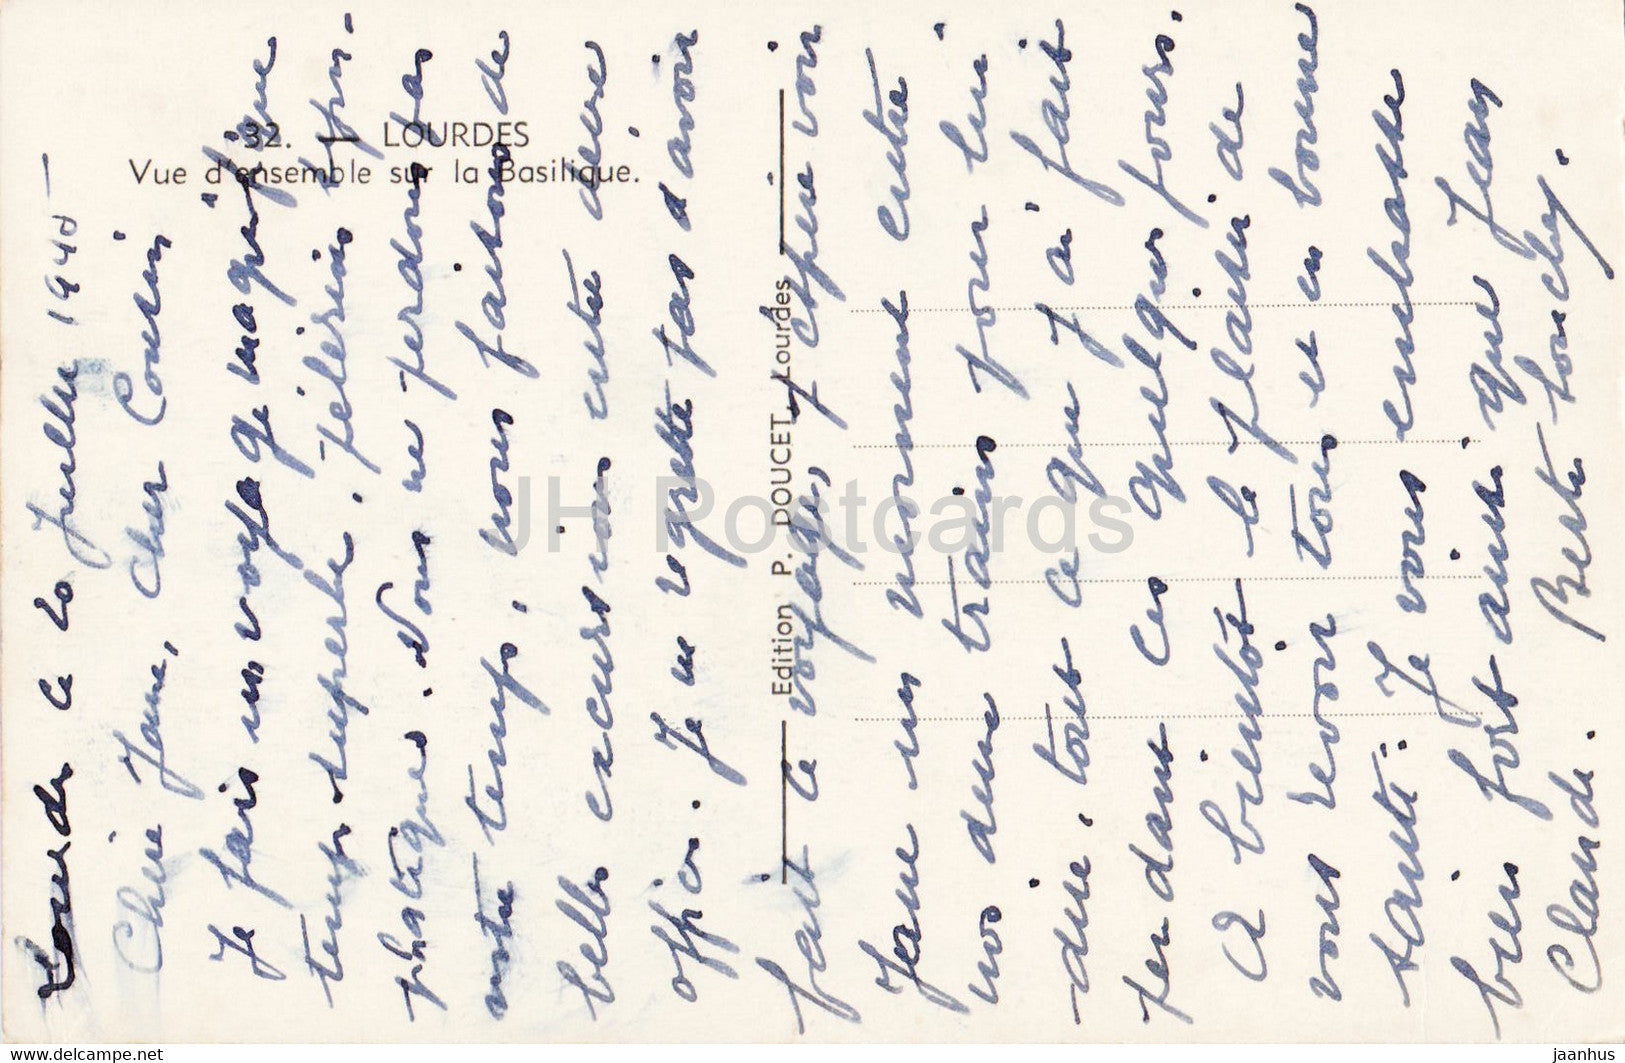 32. — LOURDES
Vue d'ensemble sur la Basilique.
Edition P. DOUCET, Lourdes
Lourdes ce 20 Juillet 194
Chère Jane, cher Cousin
Je fais un voyage magnifique
temps superbe, pèlerins sym-
phatiques. Nous ne perdons pas
notre temps, nous faisons de
belles excursions entre deux
offices. Je ne regrette pas d'avoir
fait ce voyage, j'espère voir
Jane un moment entre
nos deux trains pour lui
dire, tout ce que j'ai fait
pendant ces quelques jours.
A bientôt le plaisir de
vous revoir tous et en bonne
santé. Je vous embrasse
bien fort ainsi que Jean
Claude. Berthe
JH Postcards
www.delcampe.net
jaanhus